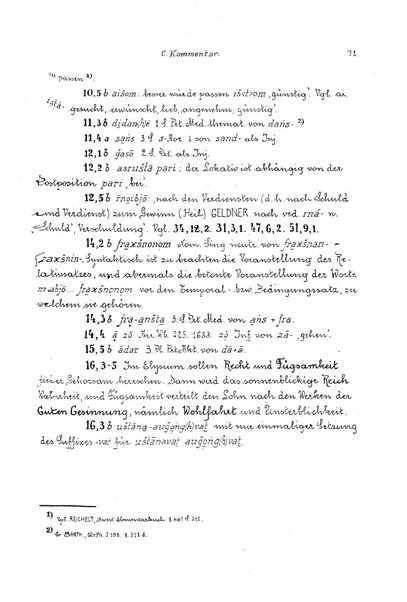 C. Kommentar. 71.
passen ¹⁾.
10,5 b aišom: besser würde passen išɛtɔom, „günstig‘. Vgl. ai.
išṭá- „gesucht, erwünscht, lieb, angenehm, günstig‘.
11,3 b 1. Pl. Prt. Med. themat. von dańs- ²⁾
11,4 a ṣąńs 3. S. s-Aor. 1 von sand- als Inj.
12,1 b ǧasō 2. S. Prt. als Inj.
12,2 b asruštā pari: der Lokativ ist abhängig von der
Postposition pari „bei‘.
12,5 b „nach den Verdiensten (d.h. nach Schuld
und Verdienst) zum Gewinn (Heil) GELDNER nach ved. rná- n.
„Schuld‘, „Verschuldung‘. Vgl. 34,12,2. 31,3,1. 47,6,2. 51,9,1.
14,2 b frąxšnonom Kom. Sing. neutr. von frąxšnan-
frąxšnin-. Syntaktisch ist zu beachten die Voranstellung des Re-
lativsatzes, und abermals die betonte Voranstellung der Worte
mabjō.. frąxšnonom vor den Temporal- bzw. Bedingungssatz, zu
welchem sie gehören.
14,3 b frą-ąnšta 3. S. Prt. Med. von ąńs + fra.
14,4 ā zō Air Wb. 225. 1688. zō Inf von zā- „gehen‘.
15,5 b ādar 3. Pl. Prt. Akt. von dā+ā.
16,3-5 Im Elysium sollen Recht und Fügsamkeit
freier Gehorsam herrschen. Dann wird das sonnenblickige Reich
Wahrheit, und Fügsamkeit verteilt den Lohn nach den Werken der
Guten Gesinnung, nämlich Wohlfahrt und Unsterblichkeit.
16,3 b uštāna-auǧoṇg(h)vat mit nur einmaliger Setzung
des Suffixes -vat für uštānavat auǧoṇg(h)vat.
1) Vgl. REICHELT, Awest. Elementarbuch § 461 S. 231.
2) So BARTH., GIrPh. I 193. § 322 d.